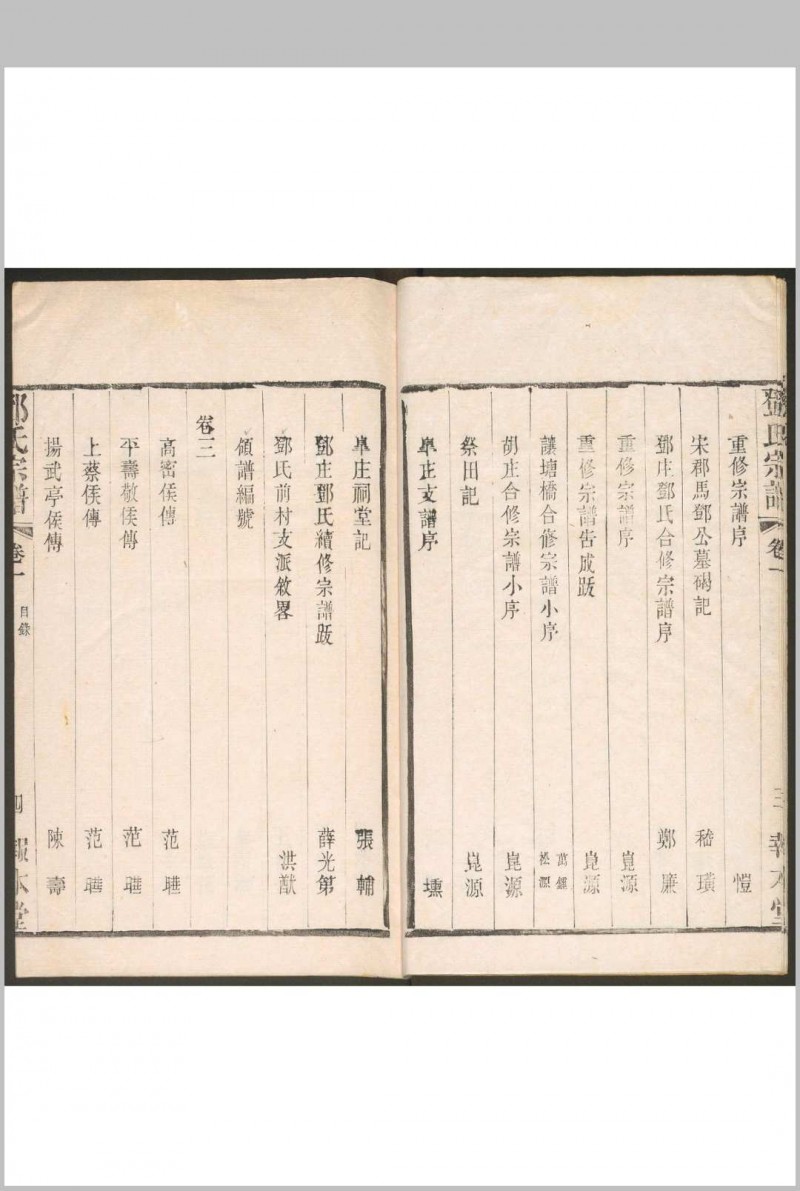 鄧氏宗譜 卷一 三 報本堂
重修宗譜序 愷
宋郡馬鄧公墓碣記 嵇璜
鄧庄鄧氏合修宗譜序 鄭廉
重修宗譜序 崑源
重修宗譜告成跋 崑源
讓塘橋合修宗譜小序 萬鎰 松源
胡庄合修宗譜小序 崑源
祭田記 崑源
阜庄支譜序 壎
阜庄祠堂記 張輔
鄧庄鄧氏續修宗譜跋 薛光第
鄧氏前村支派敘畧 洪猷
領譜編號
卷三
高密侯傳 范曄
平壽敬侯傳 范曄
上蔡侯傳 范曄
揚武亭侯傳 陳壽
鄧氏宗譜 卷一 目錄 四 報本堂